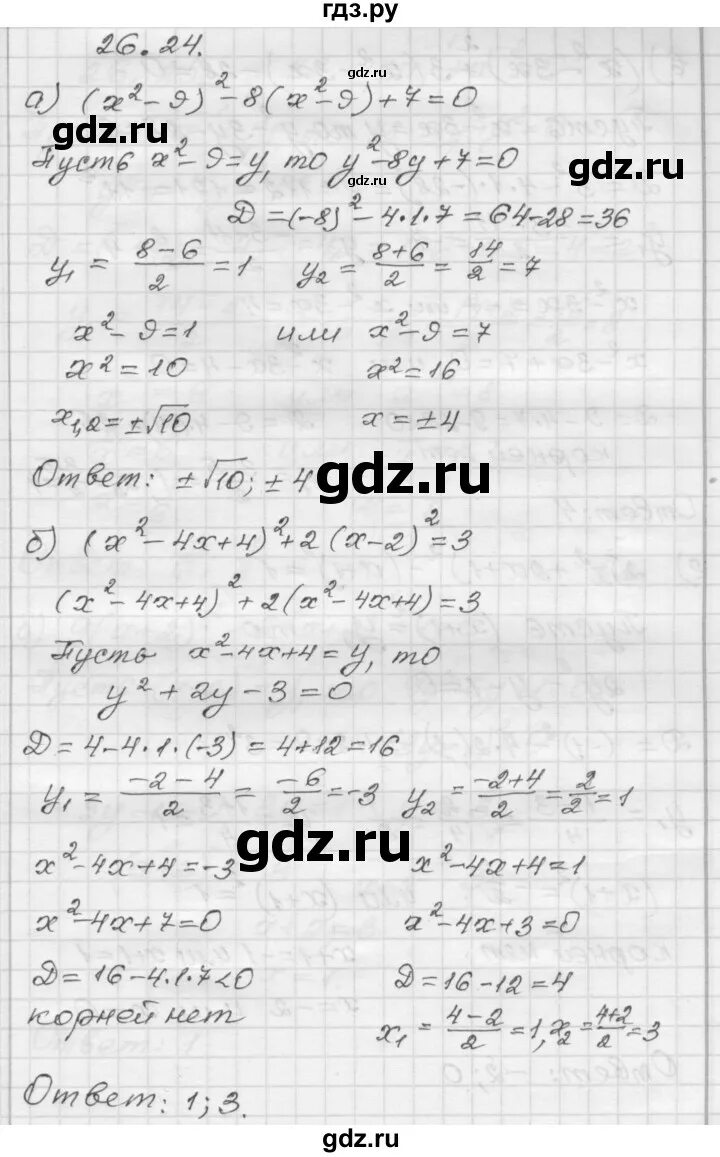 гдз.ру
26.24.
gdz.ru
а) (x² - 9)² - 8(x² - 9) + 7 = 0
gdz.ru
gdz.ru
Пусть x² - 9 = y, то y² - 8y + 7 = 0
gdz.ru
D = (-8)² - 4·1·7 = 64 - 28 = 36
y₁ = (8 - 6)/2 = 1   y₂ = (8 + 6)/2 = 14/2 = 7
x² - 9 = 1   или   x² - 9 = 7
x² = 10   x² = 16
x₁,₂ = ±√10   x = ±4
Ответ: ±√10; ±4
gdz.ru
б) (x² - 4x + 4)² + 2(x - 2)² = 3
(x² - 4x + 4)² + 2(x² - 4x + 4) = 3
Пусть x² - 4x + 4 = y, то
y² + 2y - 3 = 0
D = 4 - 4·1·(-3) = 4 + 12 = 16
y₁ = (-2 - 4)/2 = -6/2 = -3   y₂ = (-2 + 4)/2 = 2/2 = 1
gdz.ru
x² - 4x + 4 = -3   x² - 4x + 4 = 1
x² - 4x + 7 = 0   x² - 4x + 3 = 0
D = 16 - 4·1·7 < 0   D = 16 - 12 = 4
gdz.ru
корней нет   x₁ = (4 - 2)/2 = 1, x₂ = (4 + 2)/2 = 3
Ответ: 1; 3.
gdz.ru
gdz.ru